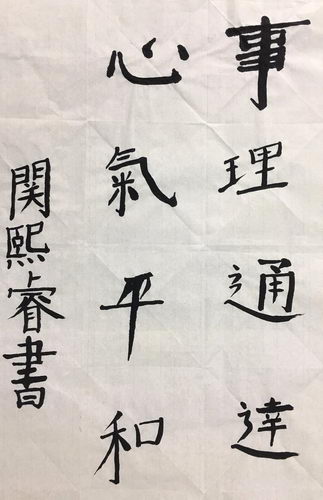 事理通達
心氣平和
関熙睿書